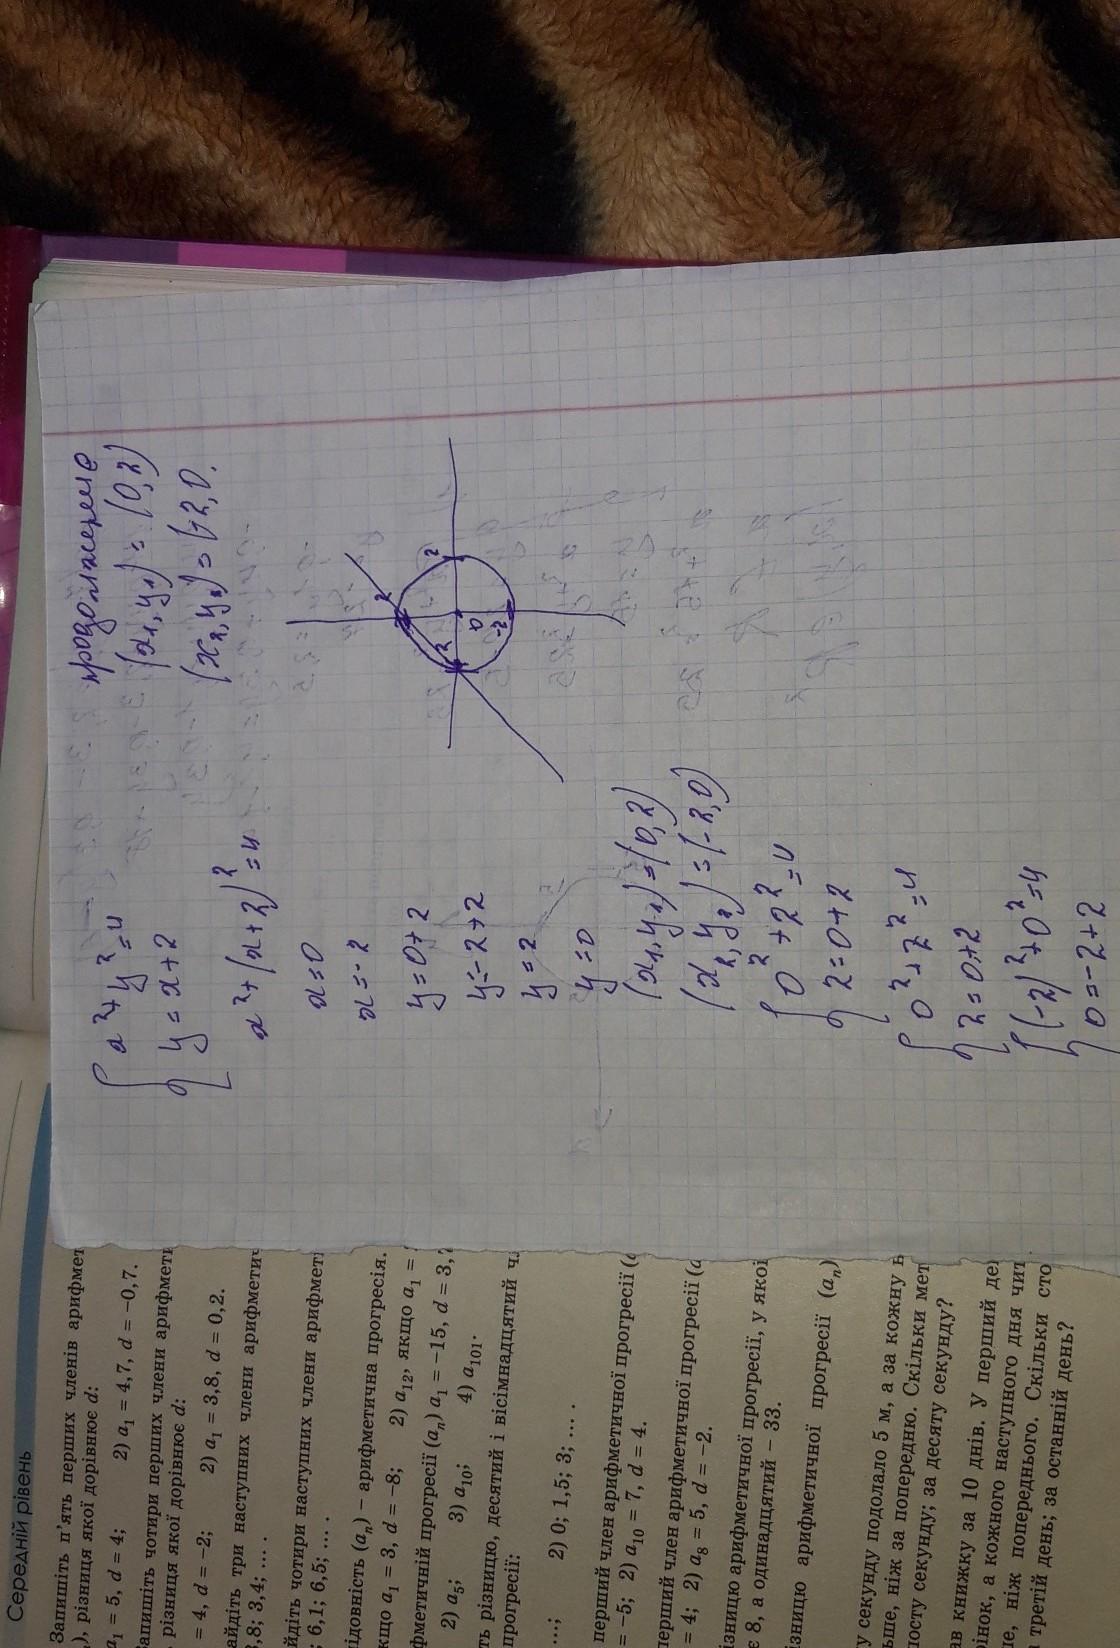 Середній рівень
Запишіть п'ять перших членів арифмет
), різниця якої дорівнює d:
a₁ = 5, d = 4; 2) a₁ = 4,7, d = −0,7.
Запишіть чотири перших члени арифметі
різниця якої дорівнює d:
= 4, d = −2; 2) a₁ = 3,8, d = 0,2.
айдіть три наступних члени арифметич
,8; 3,4; ... .
йдіть чотири наступних члени арифметі
; 6,1; 6,5; ... .
ідовність (aₙ) – арифметична прогресія.
кщо a₁ = 3, d = −8; 2) a₁₂, якщо a₁ =
фметичній прогресії (aₙ) a₁ = −15, d = 3,
2) a₅; 3) a₁₀; 4) a₁₀₁.
ть різницю, десятий і вісімнадцятий ч
прогресії:
...; 2) 0; 1,5; 3; ... .
перший член арифметичної прогресії (
= −5; 2) a₁₀ = 7, d = 4.
перший член арифметичної прогресії (
= 4; 2) a₈ = 5, d = −2.
ізницю арифметичної прогресії, у якої
є 8, а одинадцятий – 33.
ізницю арифметичної прогресії (aₙ)
у секунду подолало 5 м, а за кожну
ьше, ніж за попередню. Скільки мет
посту секунду; за десяту секунду?
ав книжку за 10 днів. У перший де
рінок, а кожного наступного дня чит
е, ніж попереднього. Скільки сто
третій день; за останній день?
x² + y² = 4
y = x + 2
x² + (x + 2)² = 4
x = 0
x = −2
y = 0 + 2
y = −2 + 2
y = 2
y = 0
(x₁, y₁) = (0, 2)
(x₂, y₂) = (−2, 0)
0² + 2² = 4
2 = 0 + 2
0² + 2² = 4
2 = 0 + 2
(−2)² + 0² = 4
0 = −2 + 2
продолжение
(x₁, y₁) = (0, 2)
(x₂, y₂) = (−2, 0.
2
2
2
0
−2